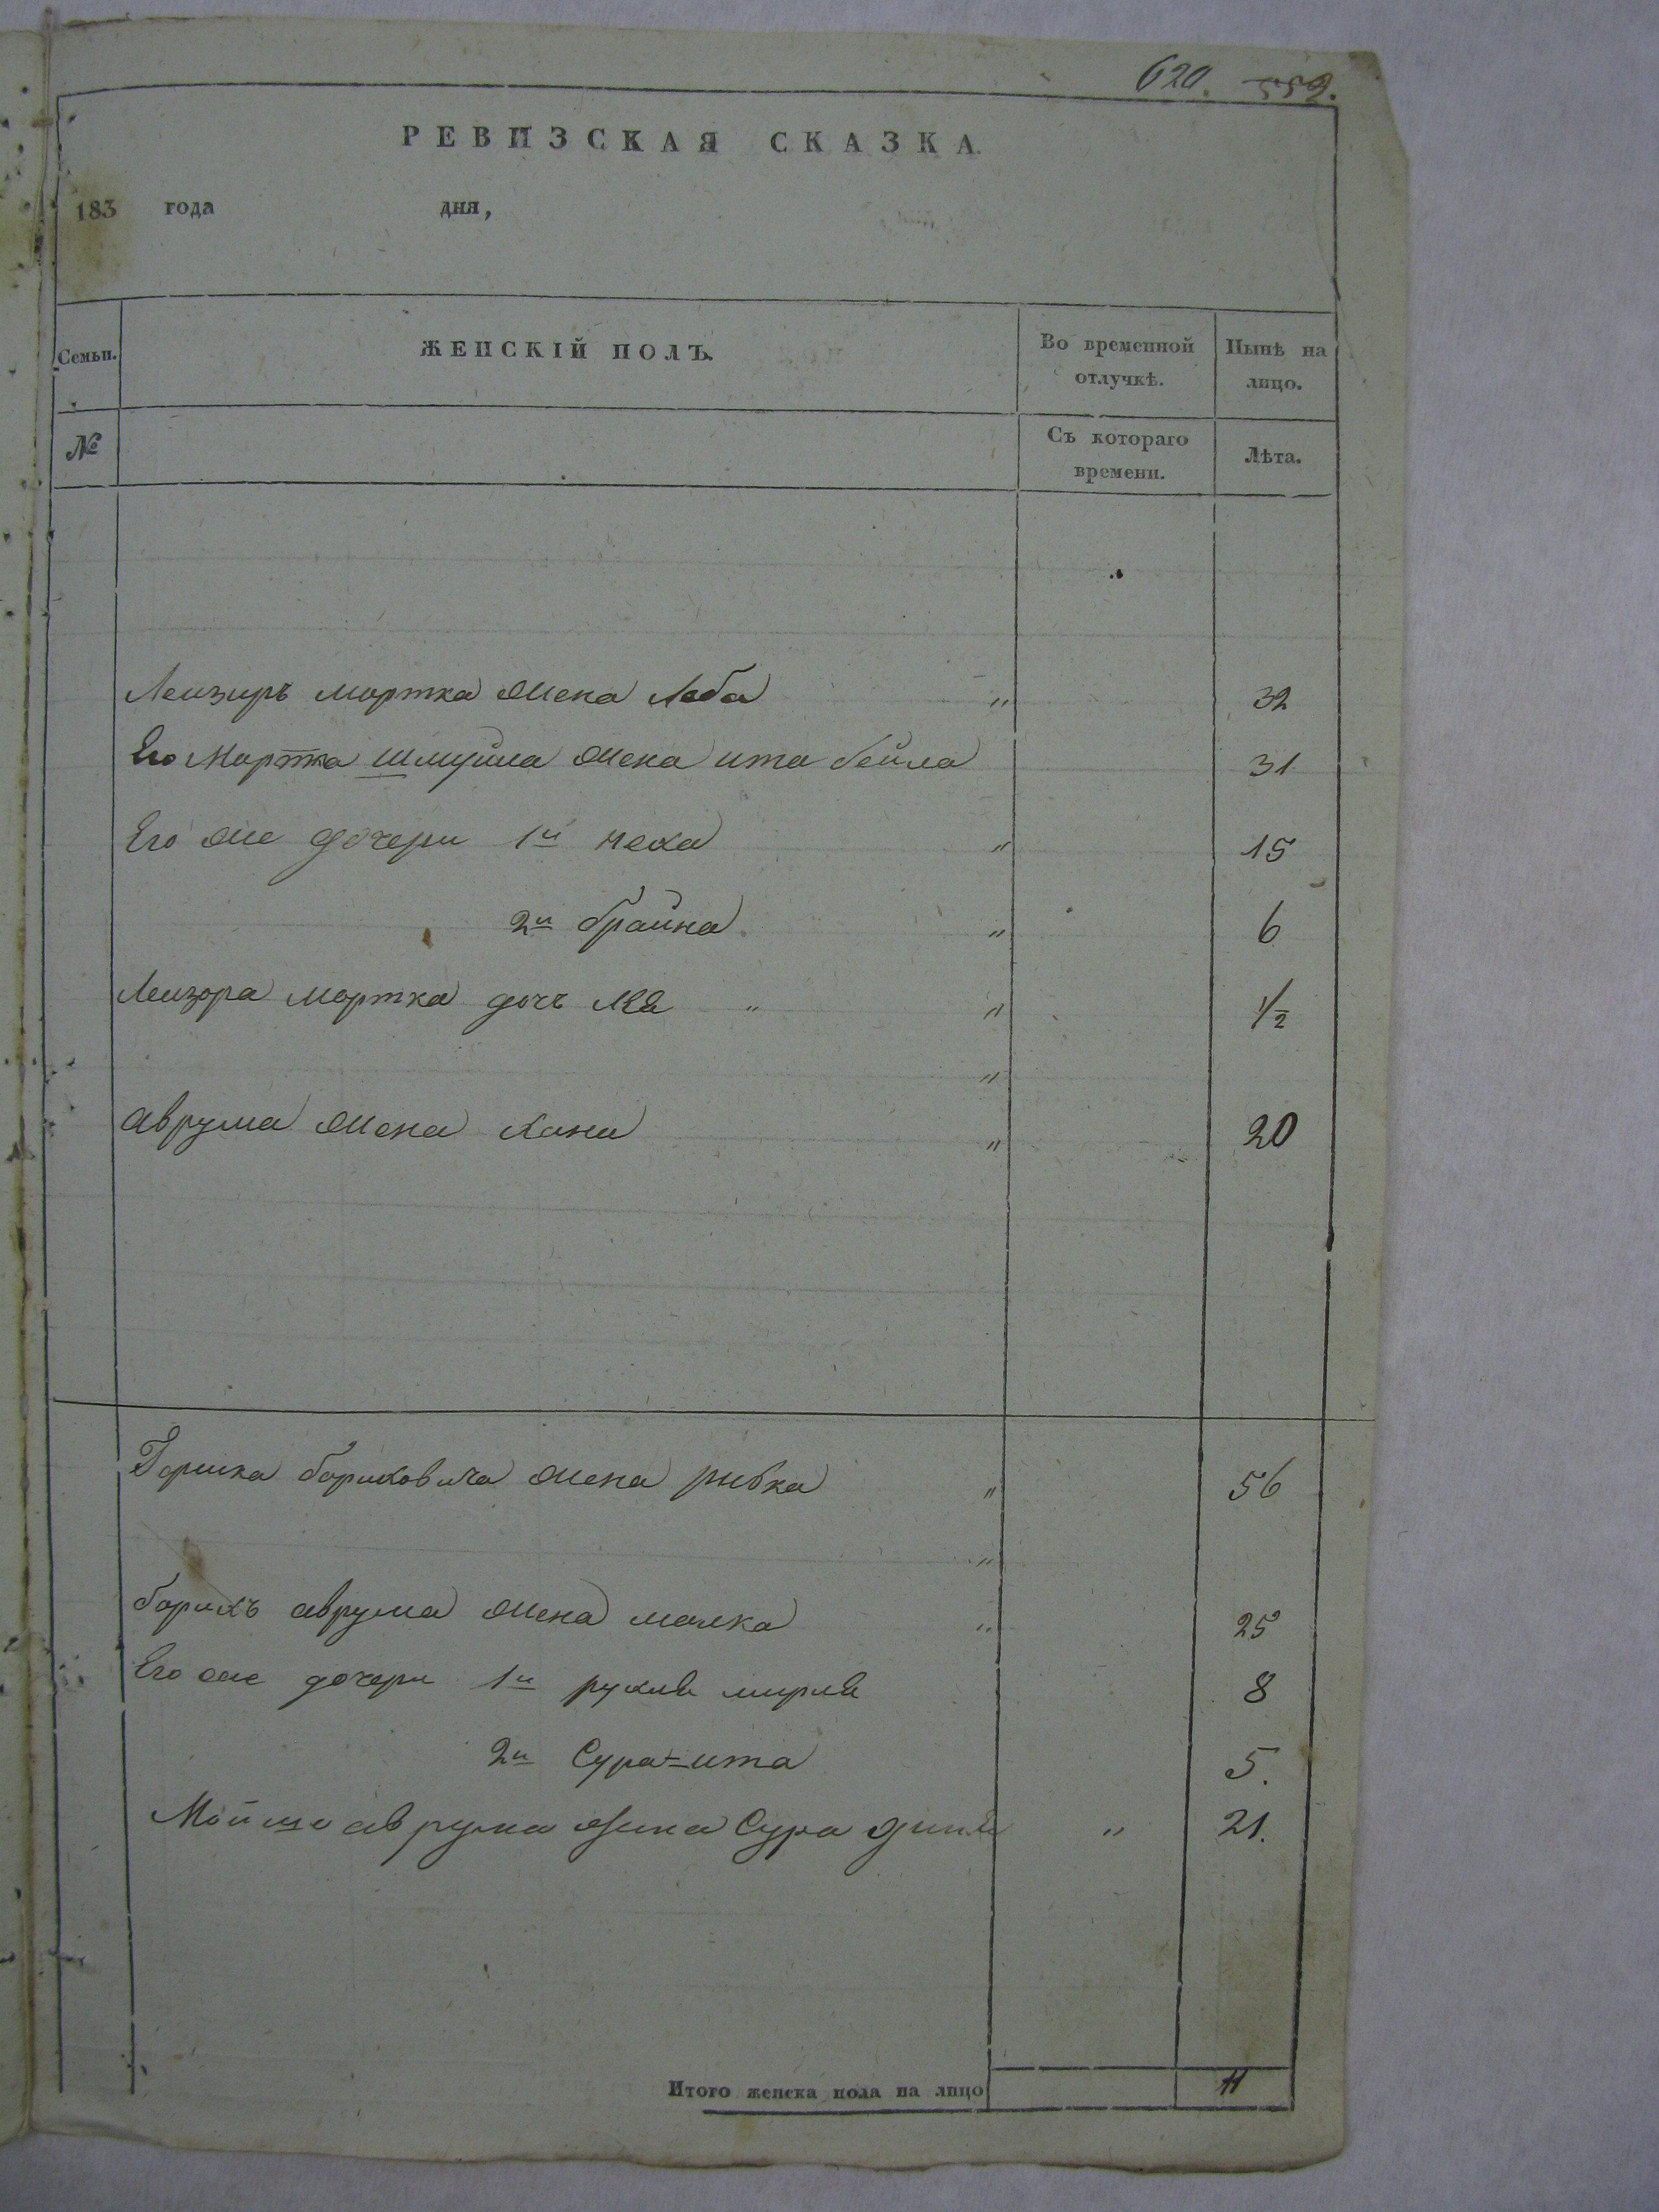 620. 559.
РЕВИЗСКАЯ СКАЗКА.
183 года дня,
Семьи. ЖЕНСКІЙ ПОЛЪ. Во временной отлучкѣ. Нынѣ на лицо.
№ Съ котораго времени. Лѣта.
Леизиръ мортка жена Леба " 32
Его Мортка шмуйла жена ита бейла 31
Его же дочери 1я неха " 15
2я брайна " 6
Леизора мортка дочъ " " 1/2
"
аврума жена хана " 20
Гершка бориховича жена ривка " 56
"
борихъ аврума жена малка " 25
Его же дочери 1я рухля мирля 8
2я Сура=ита 5.
Мойше аврума жена Сура " 21.
Итого женска пола на лицо 11